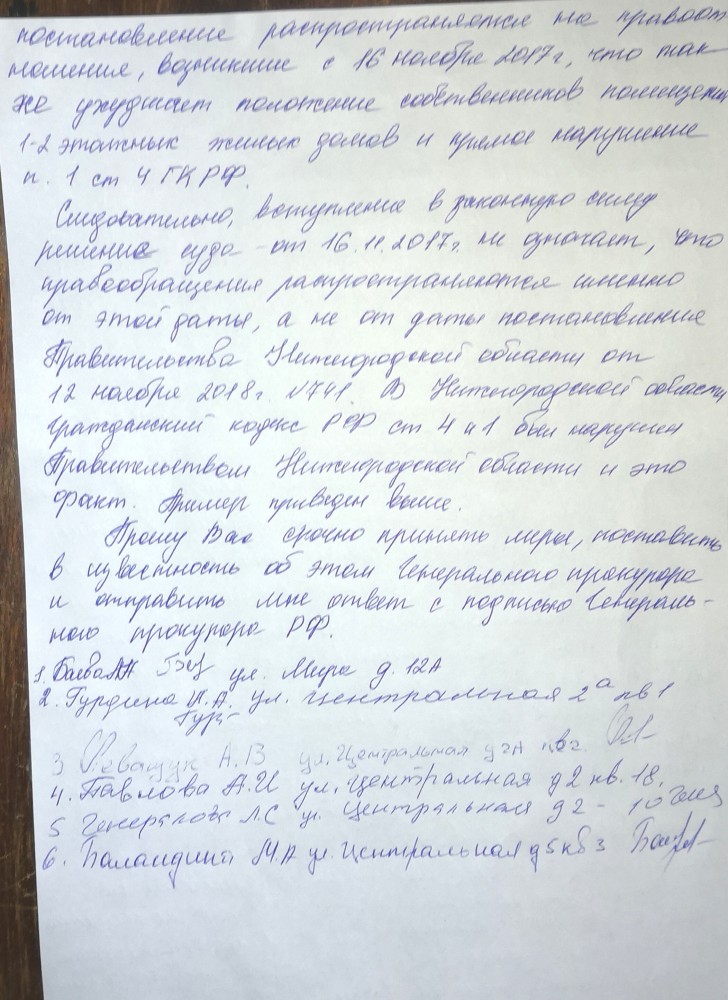 постановление распространяются на правоот
ношения, возникшие с 16 ноября 2017г, что так
же ухудшает положение собственников помещени
1-2 этажных жилых домов и прямое нарушение
п. 1 ст 4 ГК РФ.
Следовательно, вступление в законную силу
решение суда от 16.11.2017г. не означает, что
правообращения распространяются именно
от этой даты, а не от даты постановления
Правительства Нижегородской области от
12 ноября 2018г. №741. В Нижегородской области
Гражданский кодекс РФ ст 4 п1 был нарушен
Правительством Нижегородской области и это
факт. Пример приведен выше.
Прошу Вас срочно принять меры, поставить
в известность об этом Генерального прокурора
и отправить мне ответ с подписью Генераль-
ного прокурора РФ.
1. Баева ул. Мира д. 12А
2. Гурдина И.А. ул. Центральная 2а кв 1
3 А.В ул. Центральная д2А кв2
4. Павлова А.И ул. Центральная д2 кв. 18.
5 Генералова Л.С ул. Центральная д2 - 10
6. Баландина М.А ул. Центральная д5 кв 3